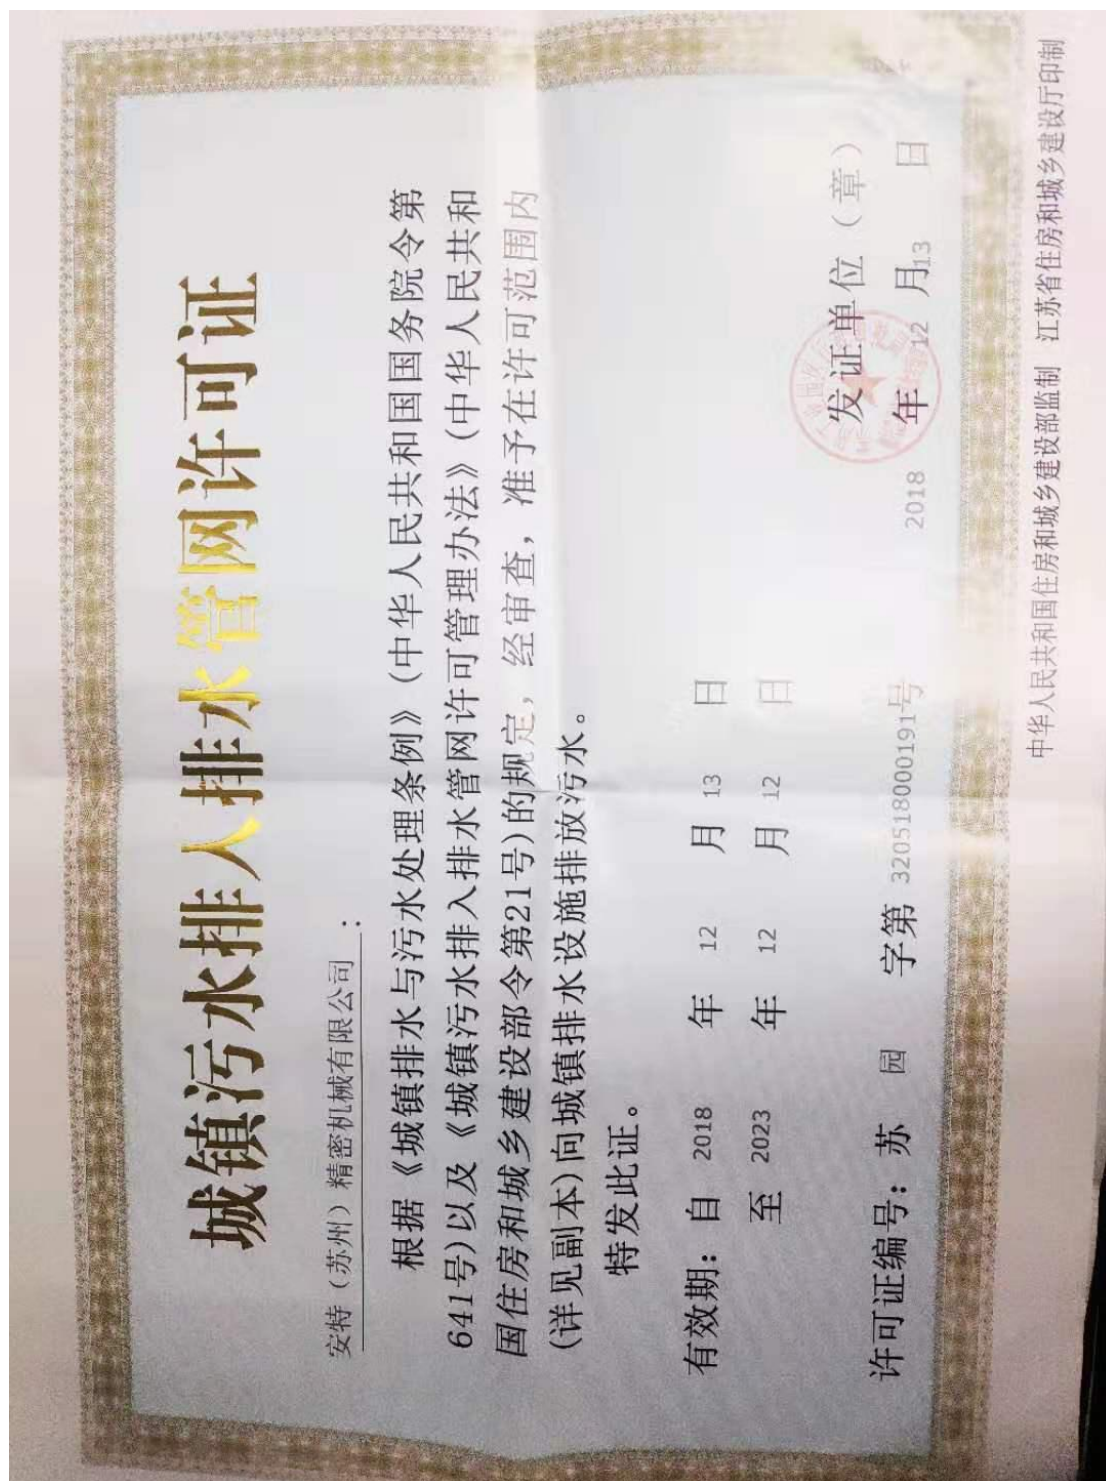 城镇污水排入排水管网许可证
安特（苏州）精密机械有限公司：
根据《城镇排水与污水处理条例》（中华人民共和国国务院令第
641号）以及《城镇污水排入排水管网许可管理办法》（中华人民共和
国住房和城乡建设部令第21号）的规定，经审查，准予在许可范围内
（详见副本）向城镇排水设施排放污水。
特发此证。
有效期：自 2018 年 12 月 13 日
至 2023 年 12 月 12 日
发证单位（章）
2018 年 12 月 13 日
许可证编号：苏 园 字第 3205180000191号
中华人民共和国住房和城乡建设部监制 江苏省住房和城乡建设厅印制